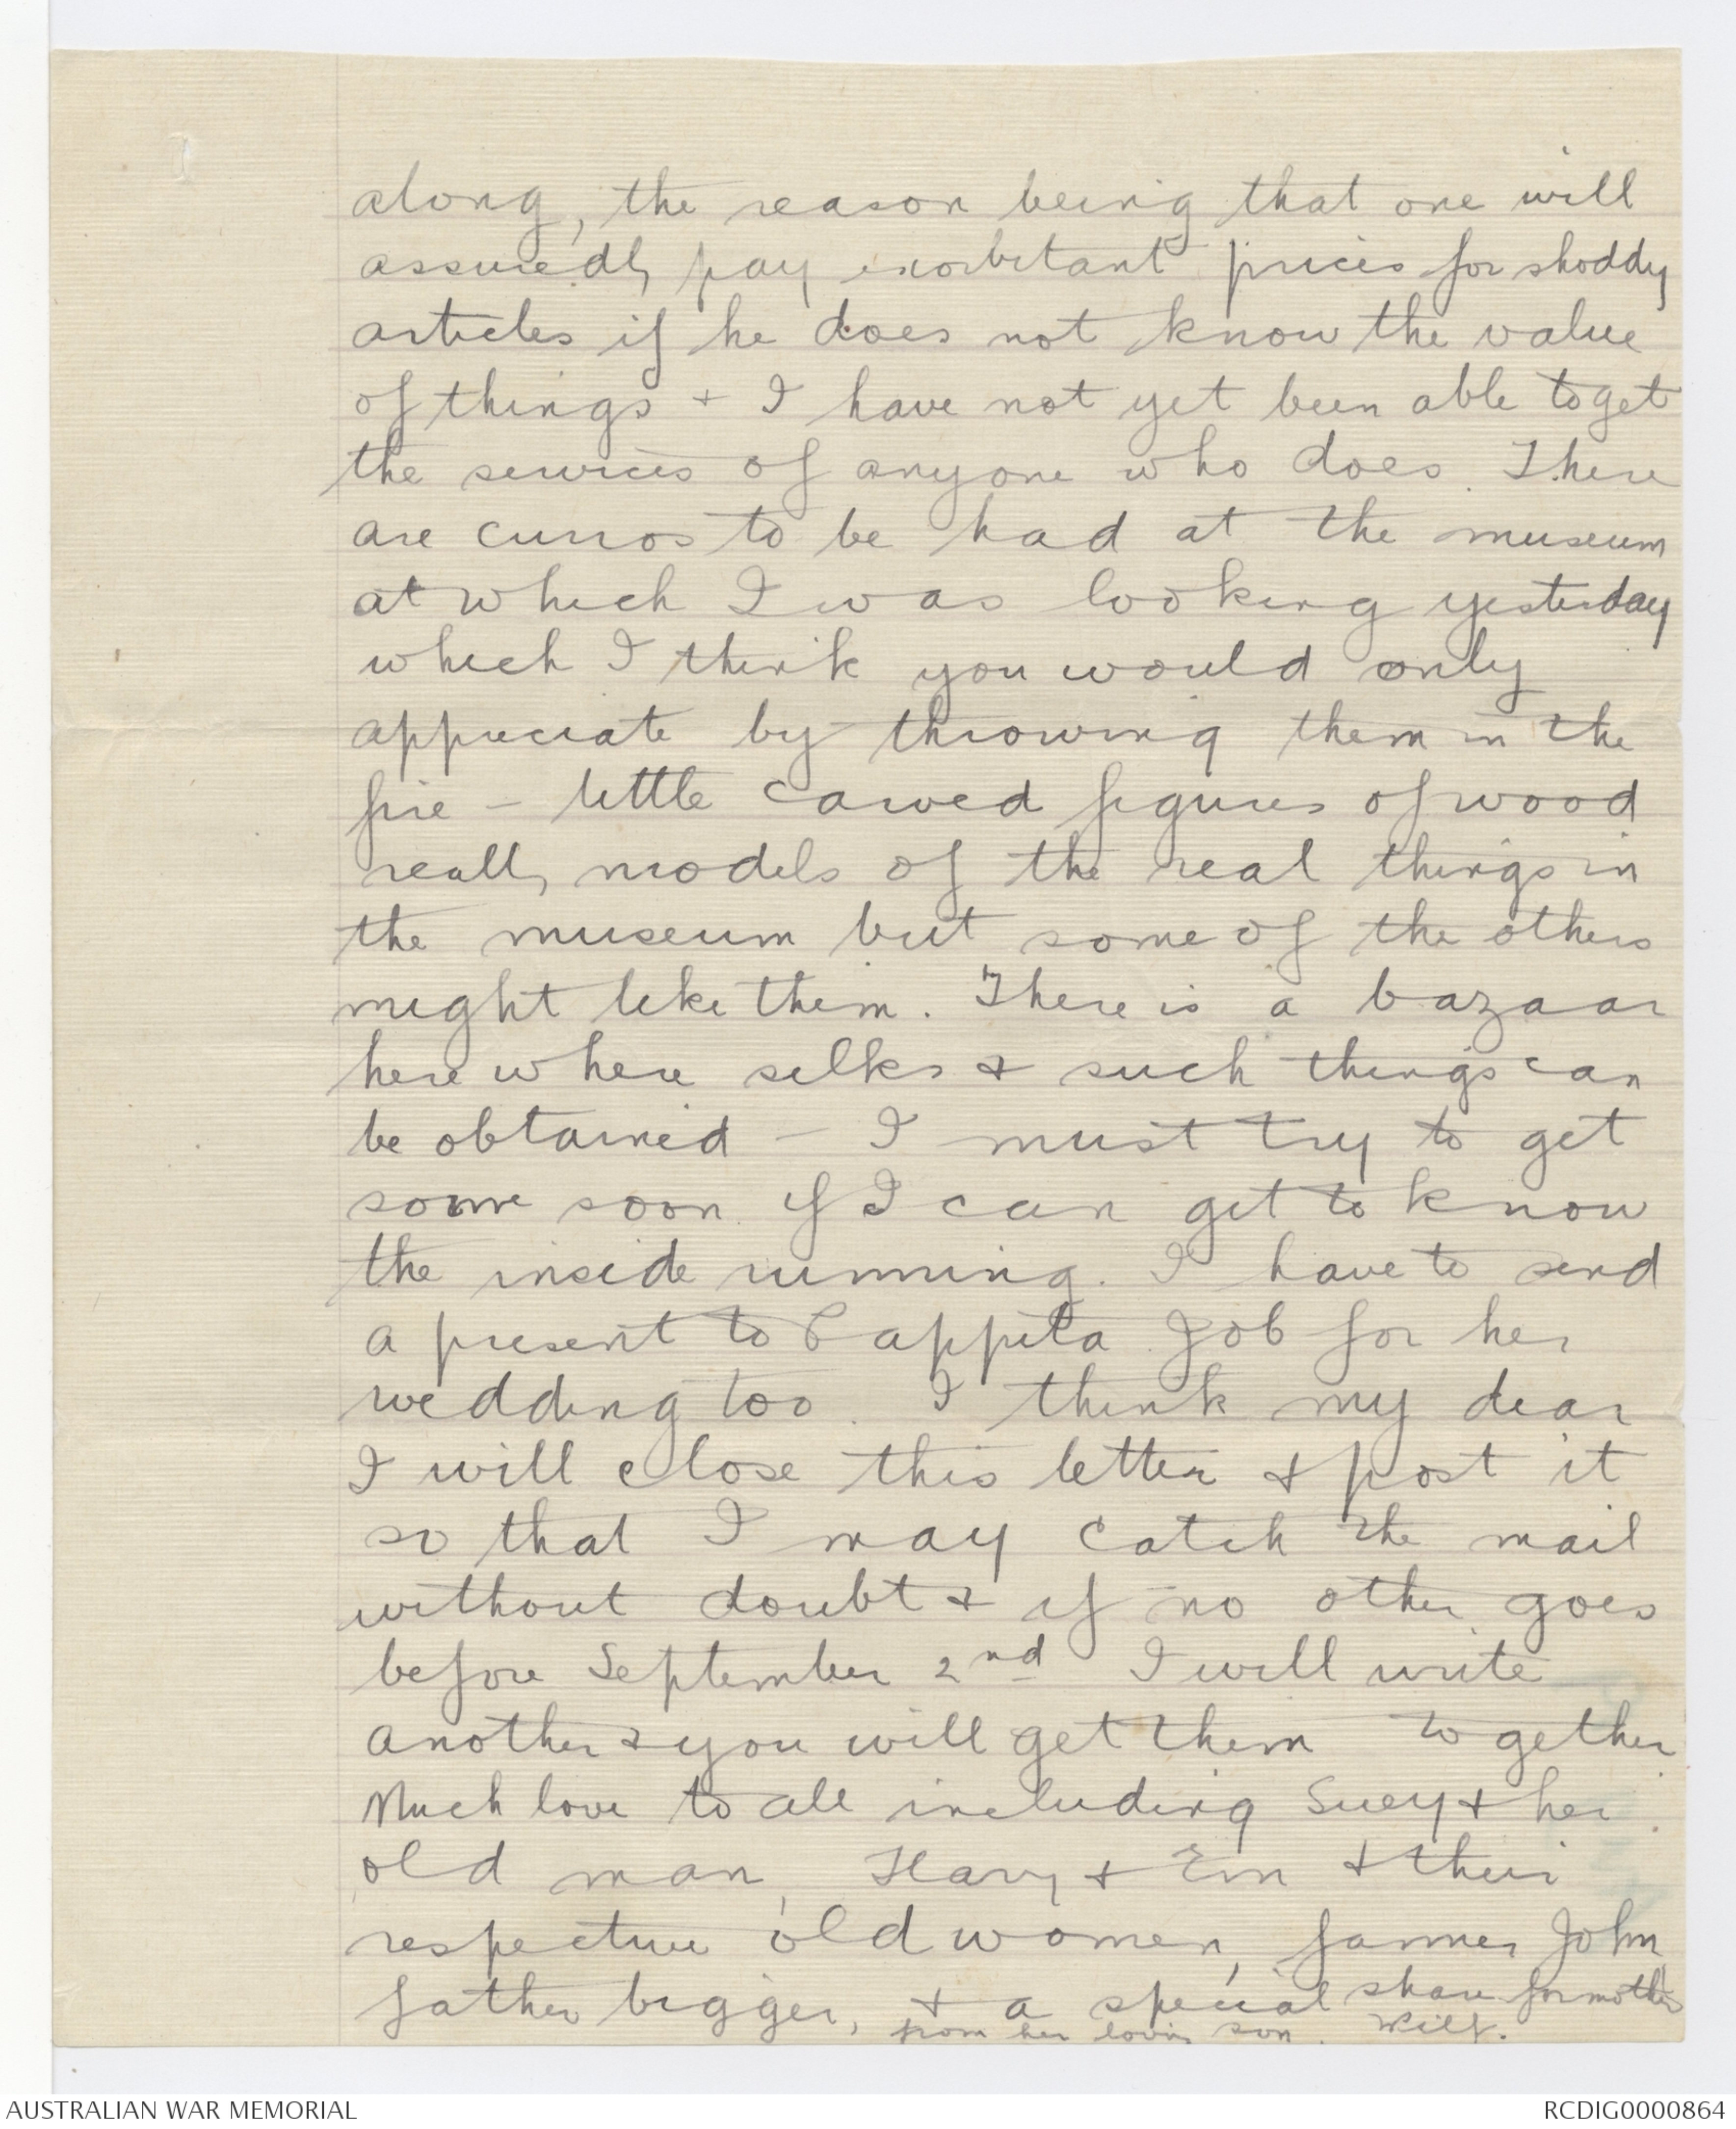 along, the reason being that one will
assuredly pay exorbitant prices for shoddy
articles if he does not know the value
of things + I have not yet been able to get
the services of anyone who does. There
are curios to be had at the museum
at which I was looking yesterday
which I think you would only
appreciate by throwing them in the
fire - little carved figures of wood
really models of the real things in
the museum but some of the others
might like them. There is a bazaar
here where silks + such things can
be obtained - I must try to get
some soon if I can get to know
the inside running. I have to send
a present to Pappita Job for her
wedding too. I think my dear
I will close this letter + post it
so that I may catch the mail
without doubt + if no other goes
before September 2nd I will write
another + you will get them together
Much love to all including Suey + her
old man, Harry + Em + their
respective old women, farmer John,
father bigger, + a special share for mother
from her loving son. Wilf.
AUSTRALIAN WAR MEMORIAL
RCDIG0000864